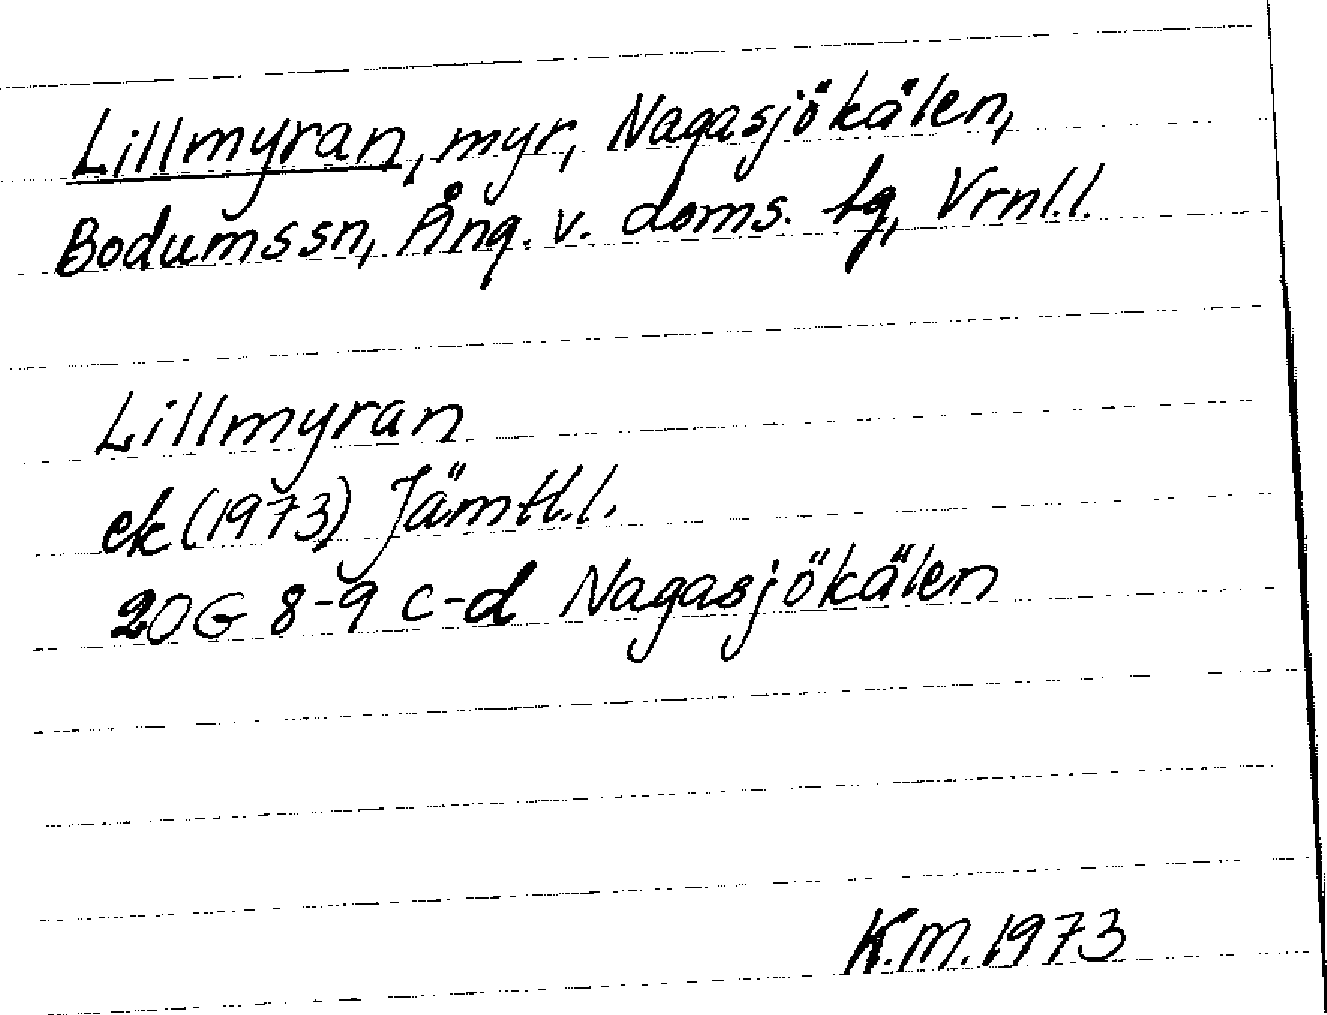 Lillmyran, myr, Nagasjökälen,
Bodumssn, Ång. v. doms. tg, Vrnl.l.
Lillmyran
ek (1973) Jämtl.l.
20G 8-9 c-d Nagasjökälen
K.M. 1973